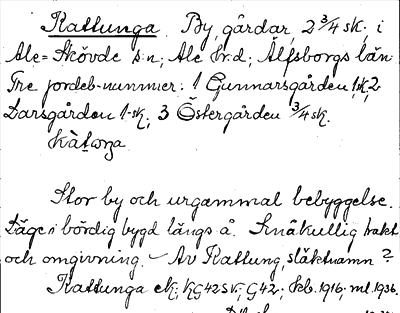 Kattunga. By, gårdar, 2 3/4 sk. i
Ale-Skövde s:n, Ale h:d, Älfsborgs län
Tre jordeb-nummer: 1 Gunnarsgården 1 sk, 2
Darsgården 1 sk, 3 Östergården 3/4 sk.
Stor by och urgammal bebyggelse.
Läge i bördig bygd längs å. Småkullig trakt
och omgivning. - Av Kattung, släktnamn?
Kattunga ek; KG 42 SV; G 42; kb. 1916; ml. 1936.